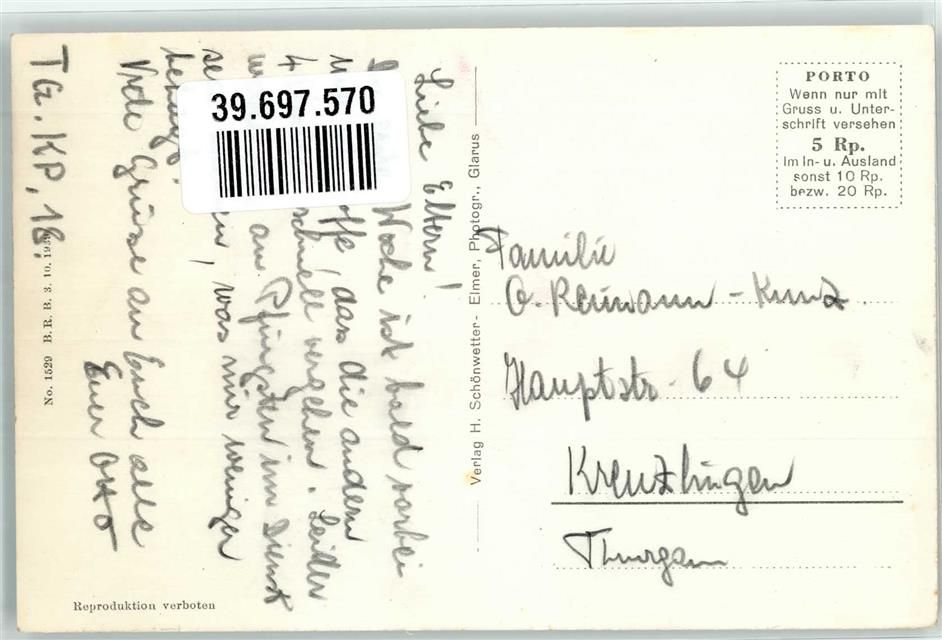 39.697.570
Liebe Eltern!
Woche ist bald vorbei
hoffe, dass die andern
4 schnell vergehen. Leider
an Pfingsten im Dienst
sein, was mir weniger
behagt.
Viele Grüsse an Euch alle
Euer Otto
TG. KP, 18.
No. 1529 B. R. B. 3. 10. 1939
Reproduktion verboten
Verlag H. Schönwetter-Elmer, Photogr., Glarus
PORTO
Wenn nur mit
Gruss u. Unter-
schrift versehen
5 Rp.
im In- u. Ausland
sonst 10 Rp.
bezw. 20 Rp.
Familie
O. Reumann-Kunz
Hauptstr. 64
Kreuzlingen
Thurgau